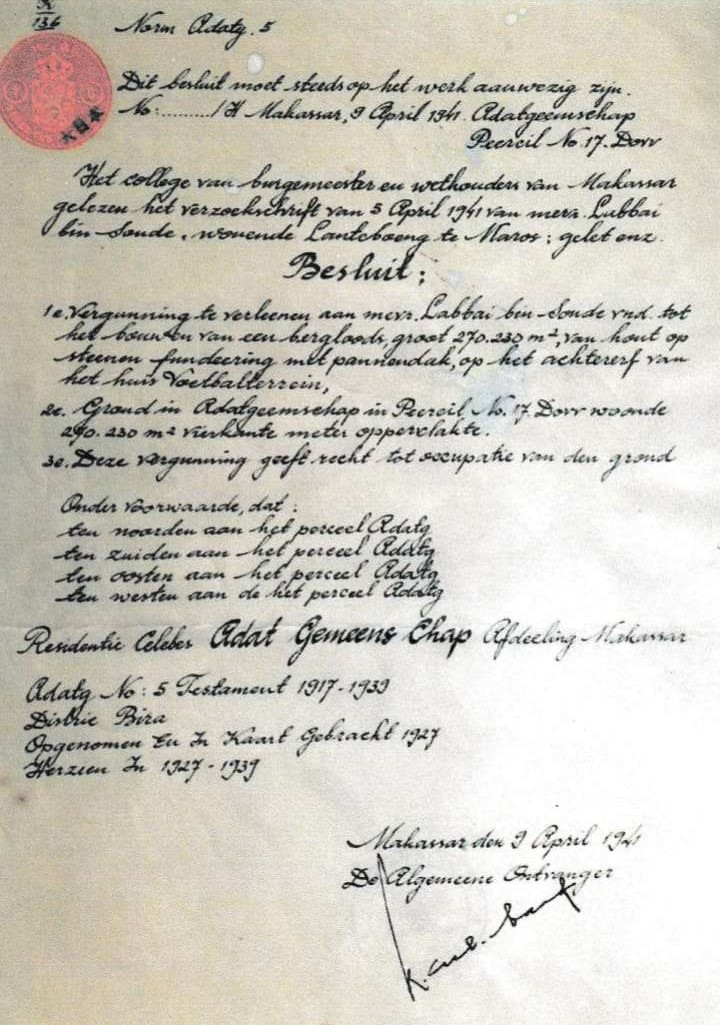 136
Norm Adatg. 5
Dit besluit moet steeds op het werk aanwezig zijn.
No:........./H Makassar, 9 April 1941. Adatgeemschap
Peerceil No. 17. Dorr
大日本
Het college van burgemeester en wethouders van Makassar
gelezen het verzoekschrift van 5 April 1941 van mevr. Labbai
bin-Soude, wonende Lanteboeng te Maros; gelet enz.
Besluit:
1e. Vergunning te verleenen aan mevr. Labbai bin-Soude vnd. tot
het bouwen van een bergloods, groot 270.230 m², van hout op
steenen fundeering met pannendak, op het achtererf van
het huis Voetbalterrein,
2e. Grond in Adatgeemschap in Peerceil No. 17. Dorr woonde
290.230 m² vierkante meter oppervlakte.
3e. Deze vergunning geeft recht tot occupatie van den grond
Onder voorwaarde, dat:
ten noorden aan het perceel Adatg
ten zuiden aan het perceel Adatg
ten oosten aan het perceel Adatg
ten westen aan de het perceel Adatg
Residentie Celebes Adat Gemeens Chap Afdeeling Makassar
Adatg No: 5 Testament 1917-1939
Distric Bira
Opgenomen En In Kaart Gebracht 1927
Herzien In 1927-1939
Makassar den 9 April 1941
De Algemeene Ontvanger